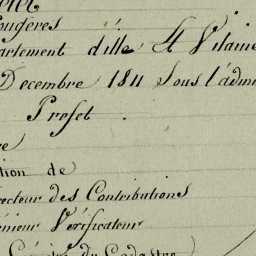 ougeres
artement d'ille & Vilaine
Decembre 1811 Sous l'admi
Prefet .
re
tion de
recteur des Contributions
énieur Vérificateur
du Cadastre